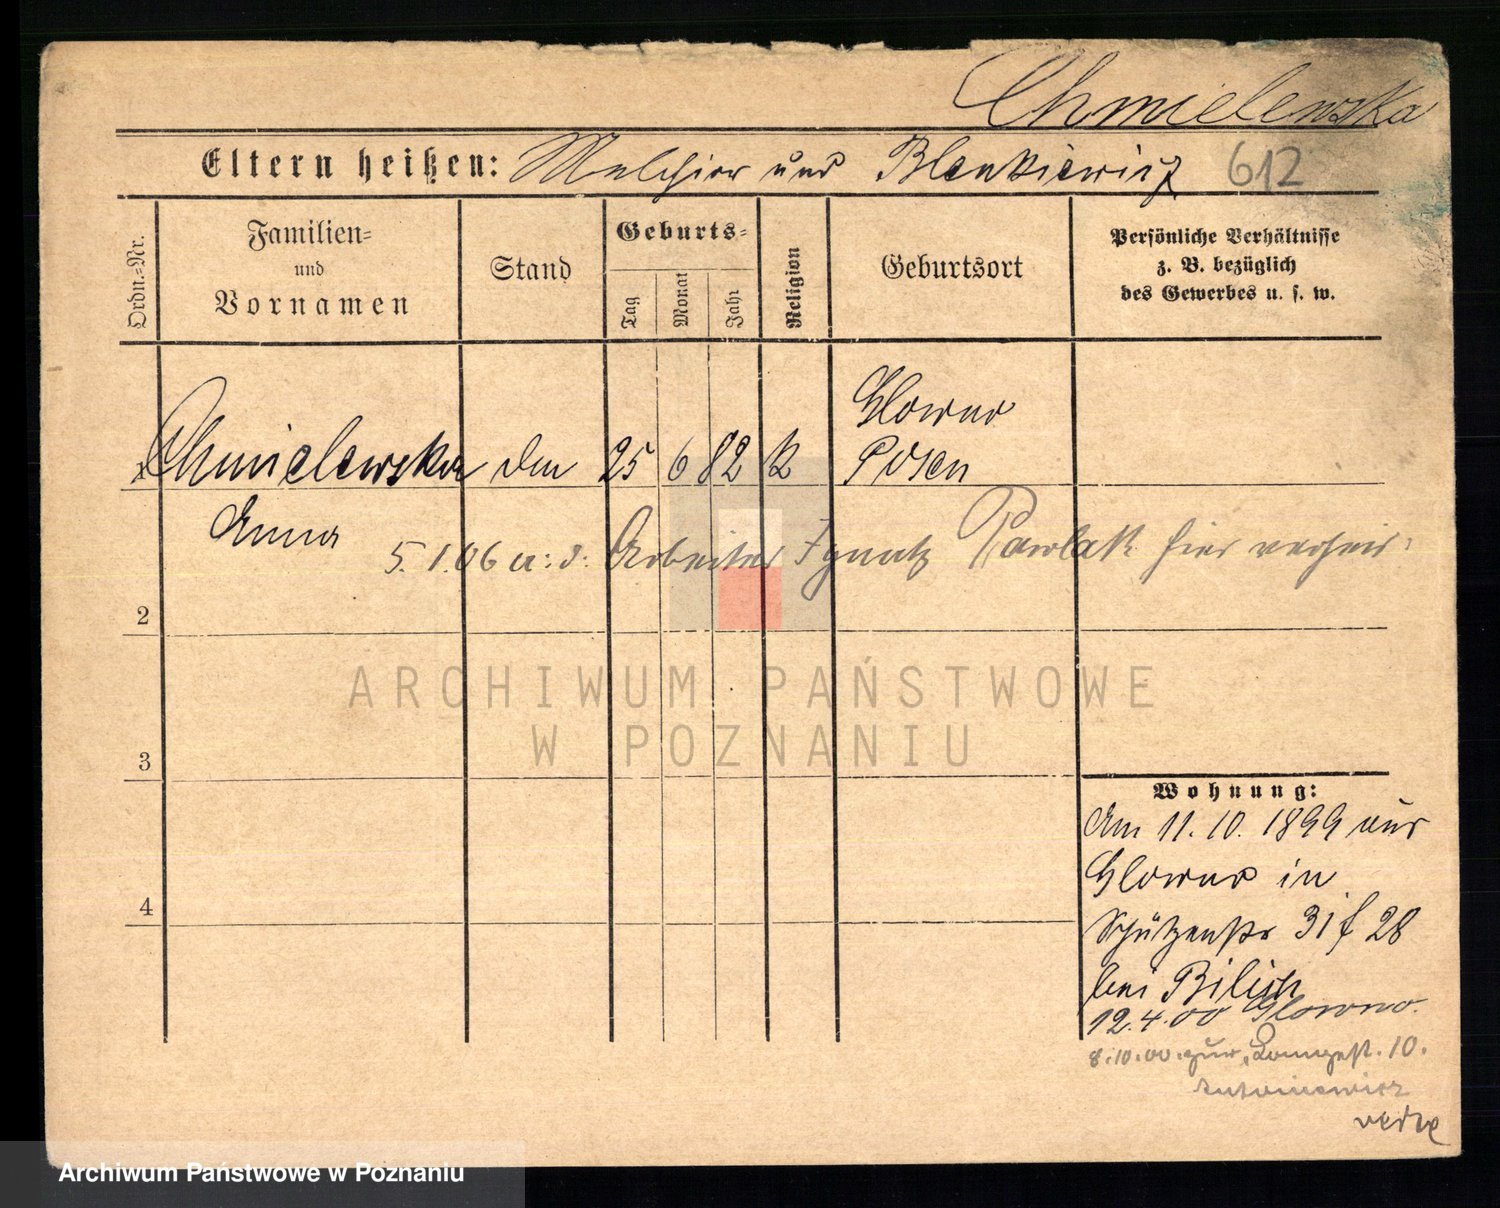 Chmielewska
Eltern heißen: Melchior und Blenkiewicz 612
Ordn.=Nr.
Familien=
und
Vornamen
Stand
Geburts=
Tag
Monat
Jahr
Religion
Geburtsort
Persönliche Verhältnisse
z. B. bezüglich
des Gewerbes u. s. w.
Glowno
1 Chmielewska 25 6 82 K Posen
Anna
5.1.06 a: d: Arbeiter Ignatz Pawlak hier verheir:
2
3
4
Wohnung:
Am 11.10.1899 aus
Glowno in
Schützenstr 31 f 28
bei Bilich
12.4.00 Glowno.
8.10.00 zur. 10.
Antoniewicz
verte
ARCHIWUM PAŃSTWOWE
W POZNANIU
Archiwum Państwowe w Poznaniu